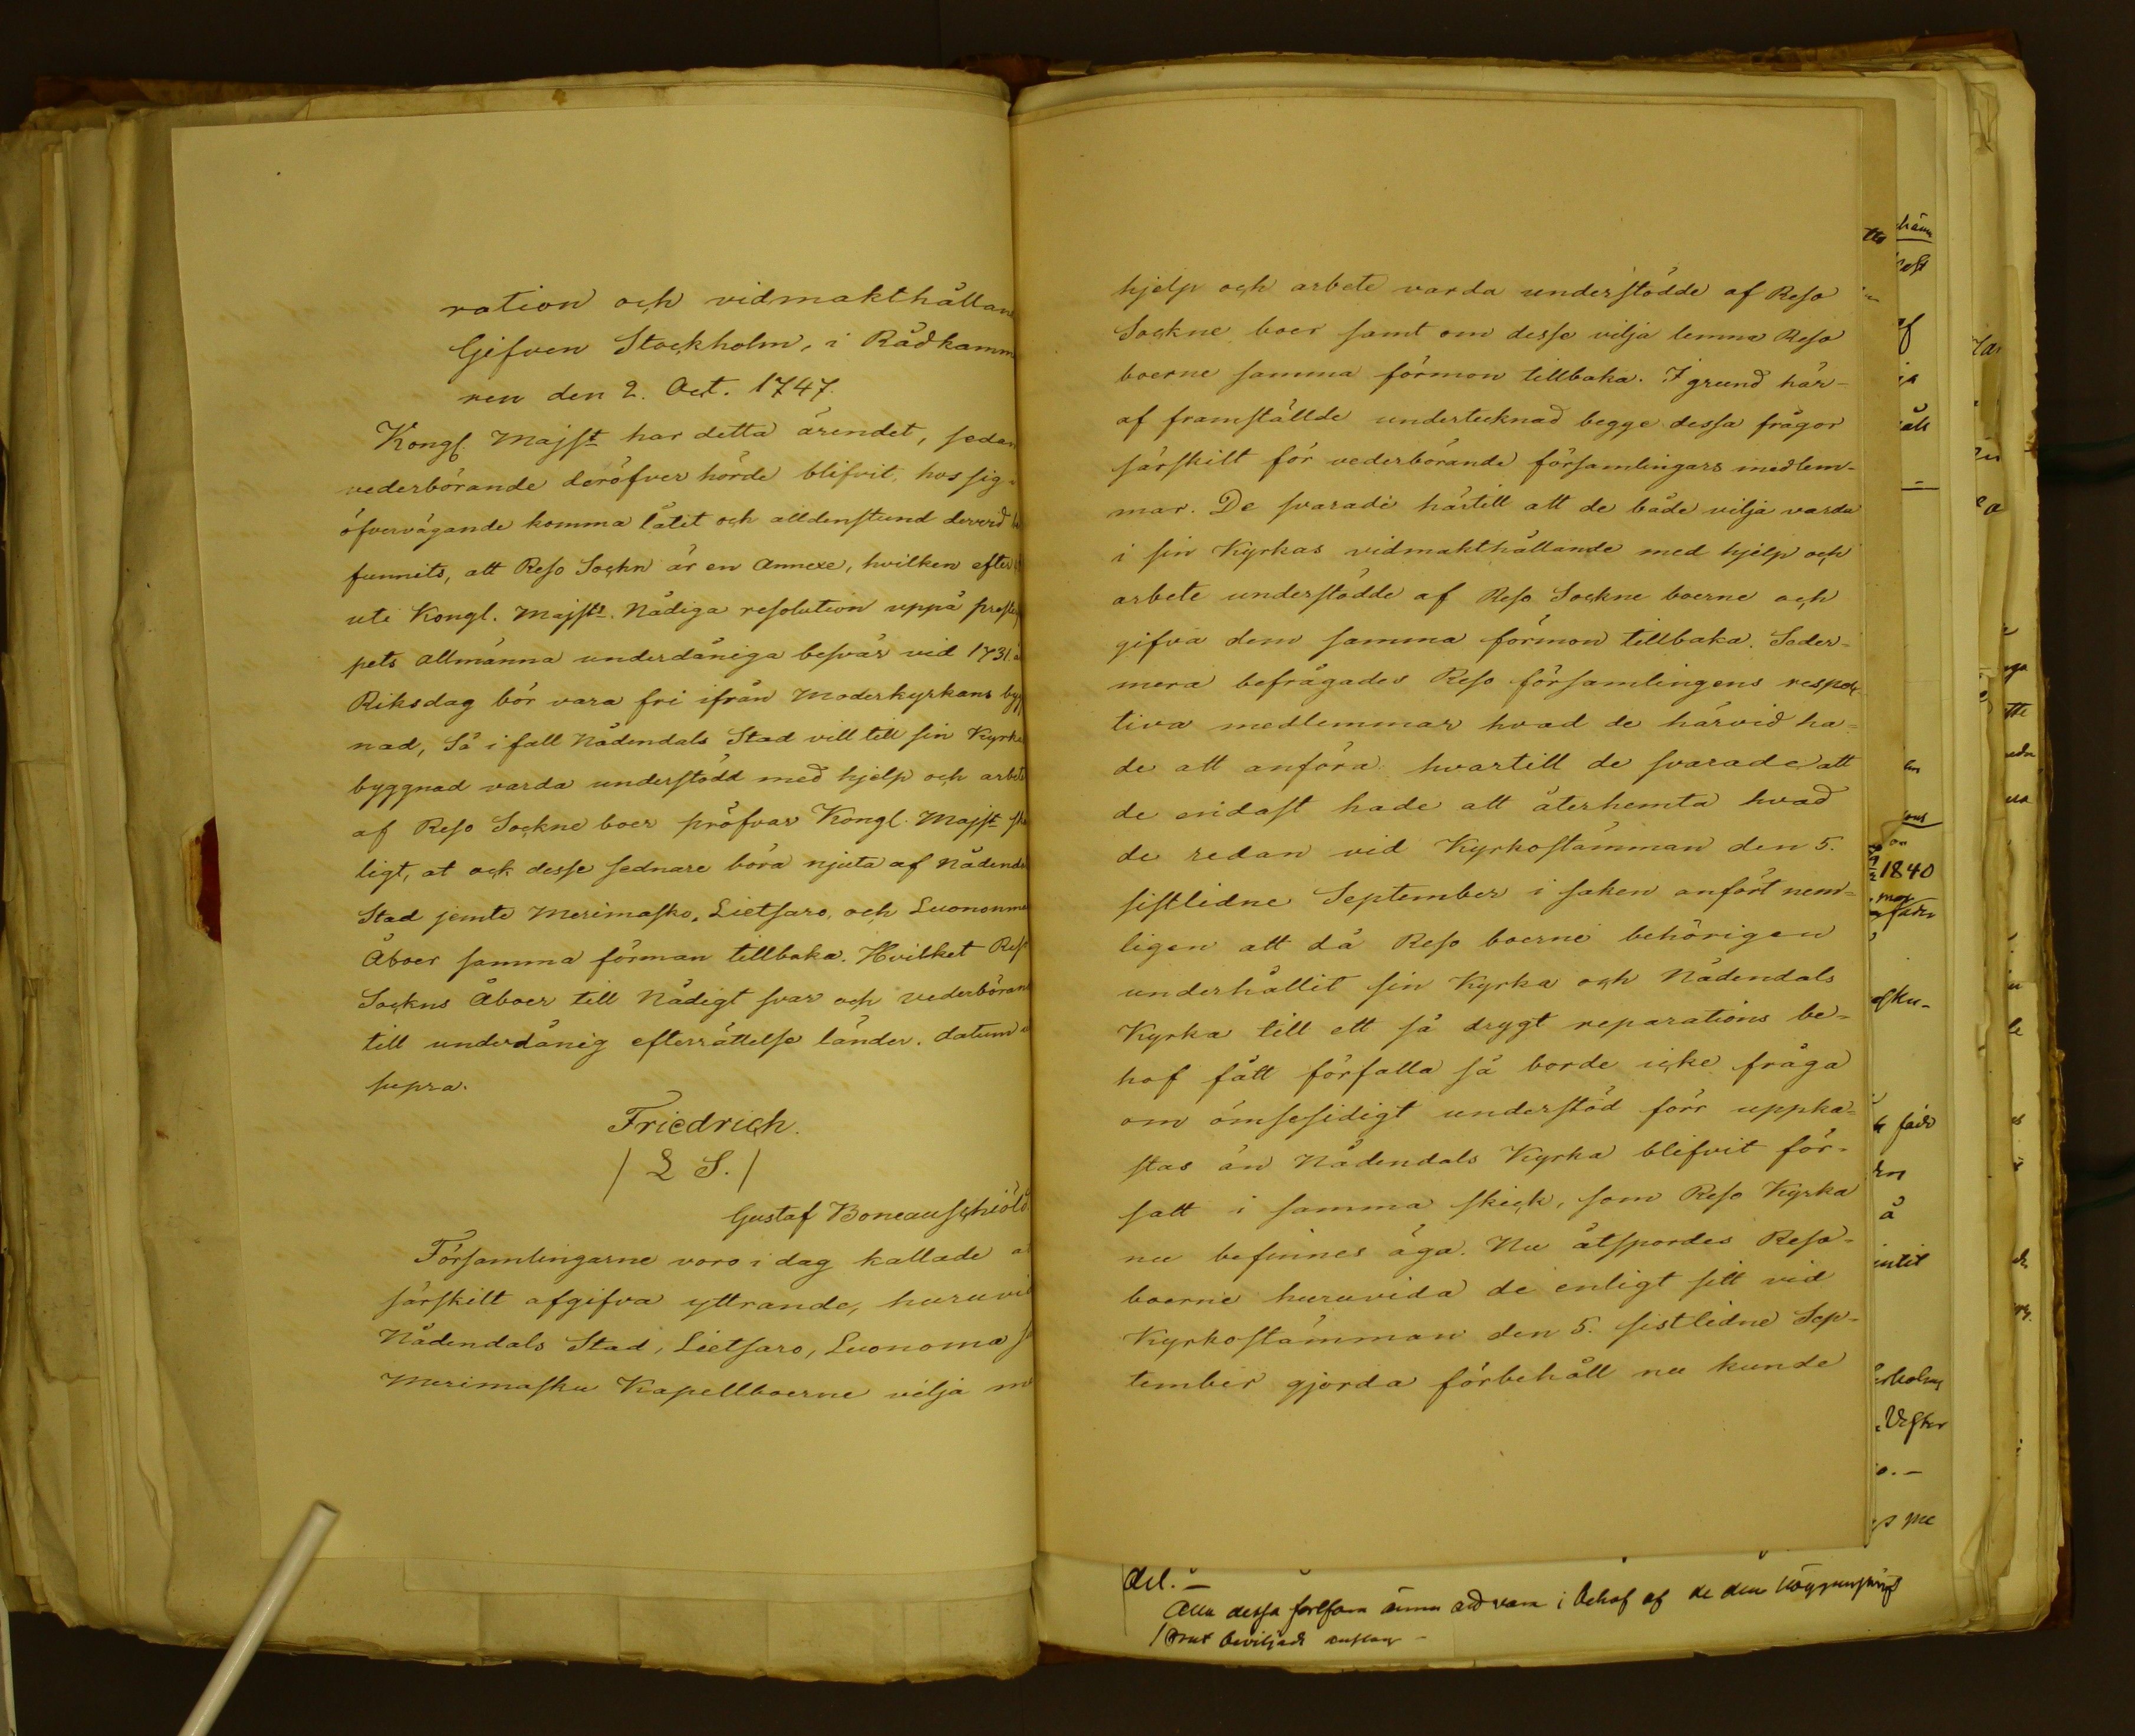 ration och vidmakthållan
Gifven Stockholm, i Rådkamm
ren den 2. Oct. 1747.
Kongl. Majst har detta ärendet, sedan
vederbörande deröfver hörde blifvit, hos sig
öfvervägande komma låtit och alldenstund dervid be
funnits, att Reso Sockn är en Annexe, hvilken efter
uti Kongl. Majsts. Nådiga resolution uppå prester
pets allmänna underdåniga besvär vid 1731. å
Riksdag bör vara fri ifrån Moderkyrkans bygg
nad, Så i fall Nådendals Stad vill till sin Kyrko
byggnad varda understödd med hjelp och arbete
af Reso Sockne boer pröfvar Kongl. Majst skä
ligt, at ock desse sednare böra njuta af Nådenda
Stad jemte Merimasko, Lietsaro, och Luononma
Åboer samma förmån tillbaka. Hvilket Reso
Sockns Åboer till Nådigt svar och vederböran
till underdånig efterrättelse länder. datum u
supra.
Friedrich.
/ L S. /
Gustaf Boneauschiöld.
Församlingarne voro i dag kallade at
särskilt afgifva yttrande, huruvid
Nådendals Stad, Lietsaro, Luonoma
Merimasku Kapellboerne vilja me
hjelp och arbete varda understödde af Reso
Sockne boer samt om desse vilja lemna Reso
boerne samma förmon tillbaka. I grund här-
af framställde undertecknad begge dessa frågor
särskilt för vederbörande församlingars medlem-
mar. De svarade härtill att de både vilja varda
i sin Kyrkas vidmakthållande med hjelp och
arbete understödde af Reso Sockne boerne och
gifva dem samma förmon tillbaka. Seder-
mera befrågades Reso församlingens respec-
tiva medlemmar hvad de härvid ha-
de att anföra hvartill de svarade att
de endast hade att återhemta hvad
de redan vid Kyrkostämman den 5.
sistlidne September i saken anfört nem-
ligen att då Reso boerne behörigen
underhållit sin Kyrka och Nådendals
Kyrka till ett så drygt reparations be-
hof fått förfalla så borde icke fråga
om ömsesidigt understöd förr uppka-
stas än Nådendals Kyrka blifvit för-
satt i samma skick, som Reso Kyrka
nu befinnes äga. Nu åtspordes Reso-
boerne huruvida de enligt sitt vid
Kyrkostämman den 5. sistlidne Sep-
tember gjorda förbehåll nu kunde
1840
del. -
Alla dessa
i behof af de den